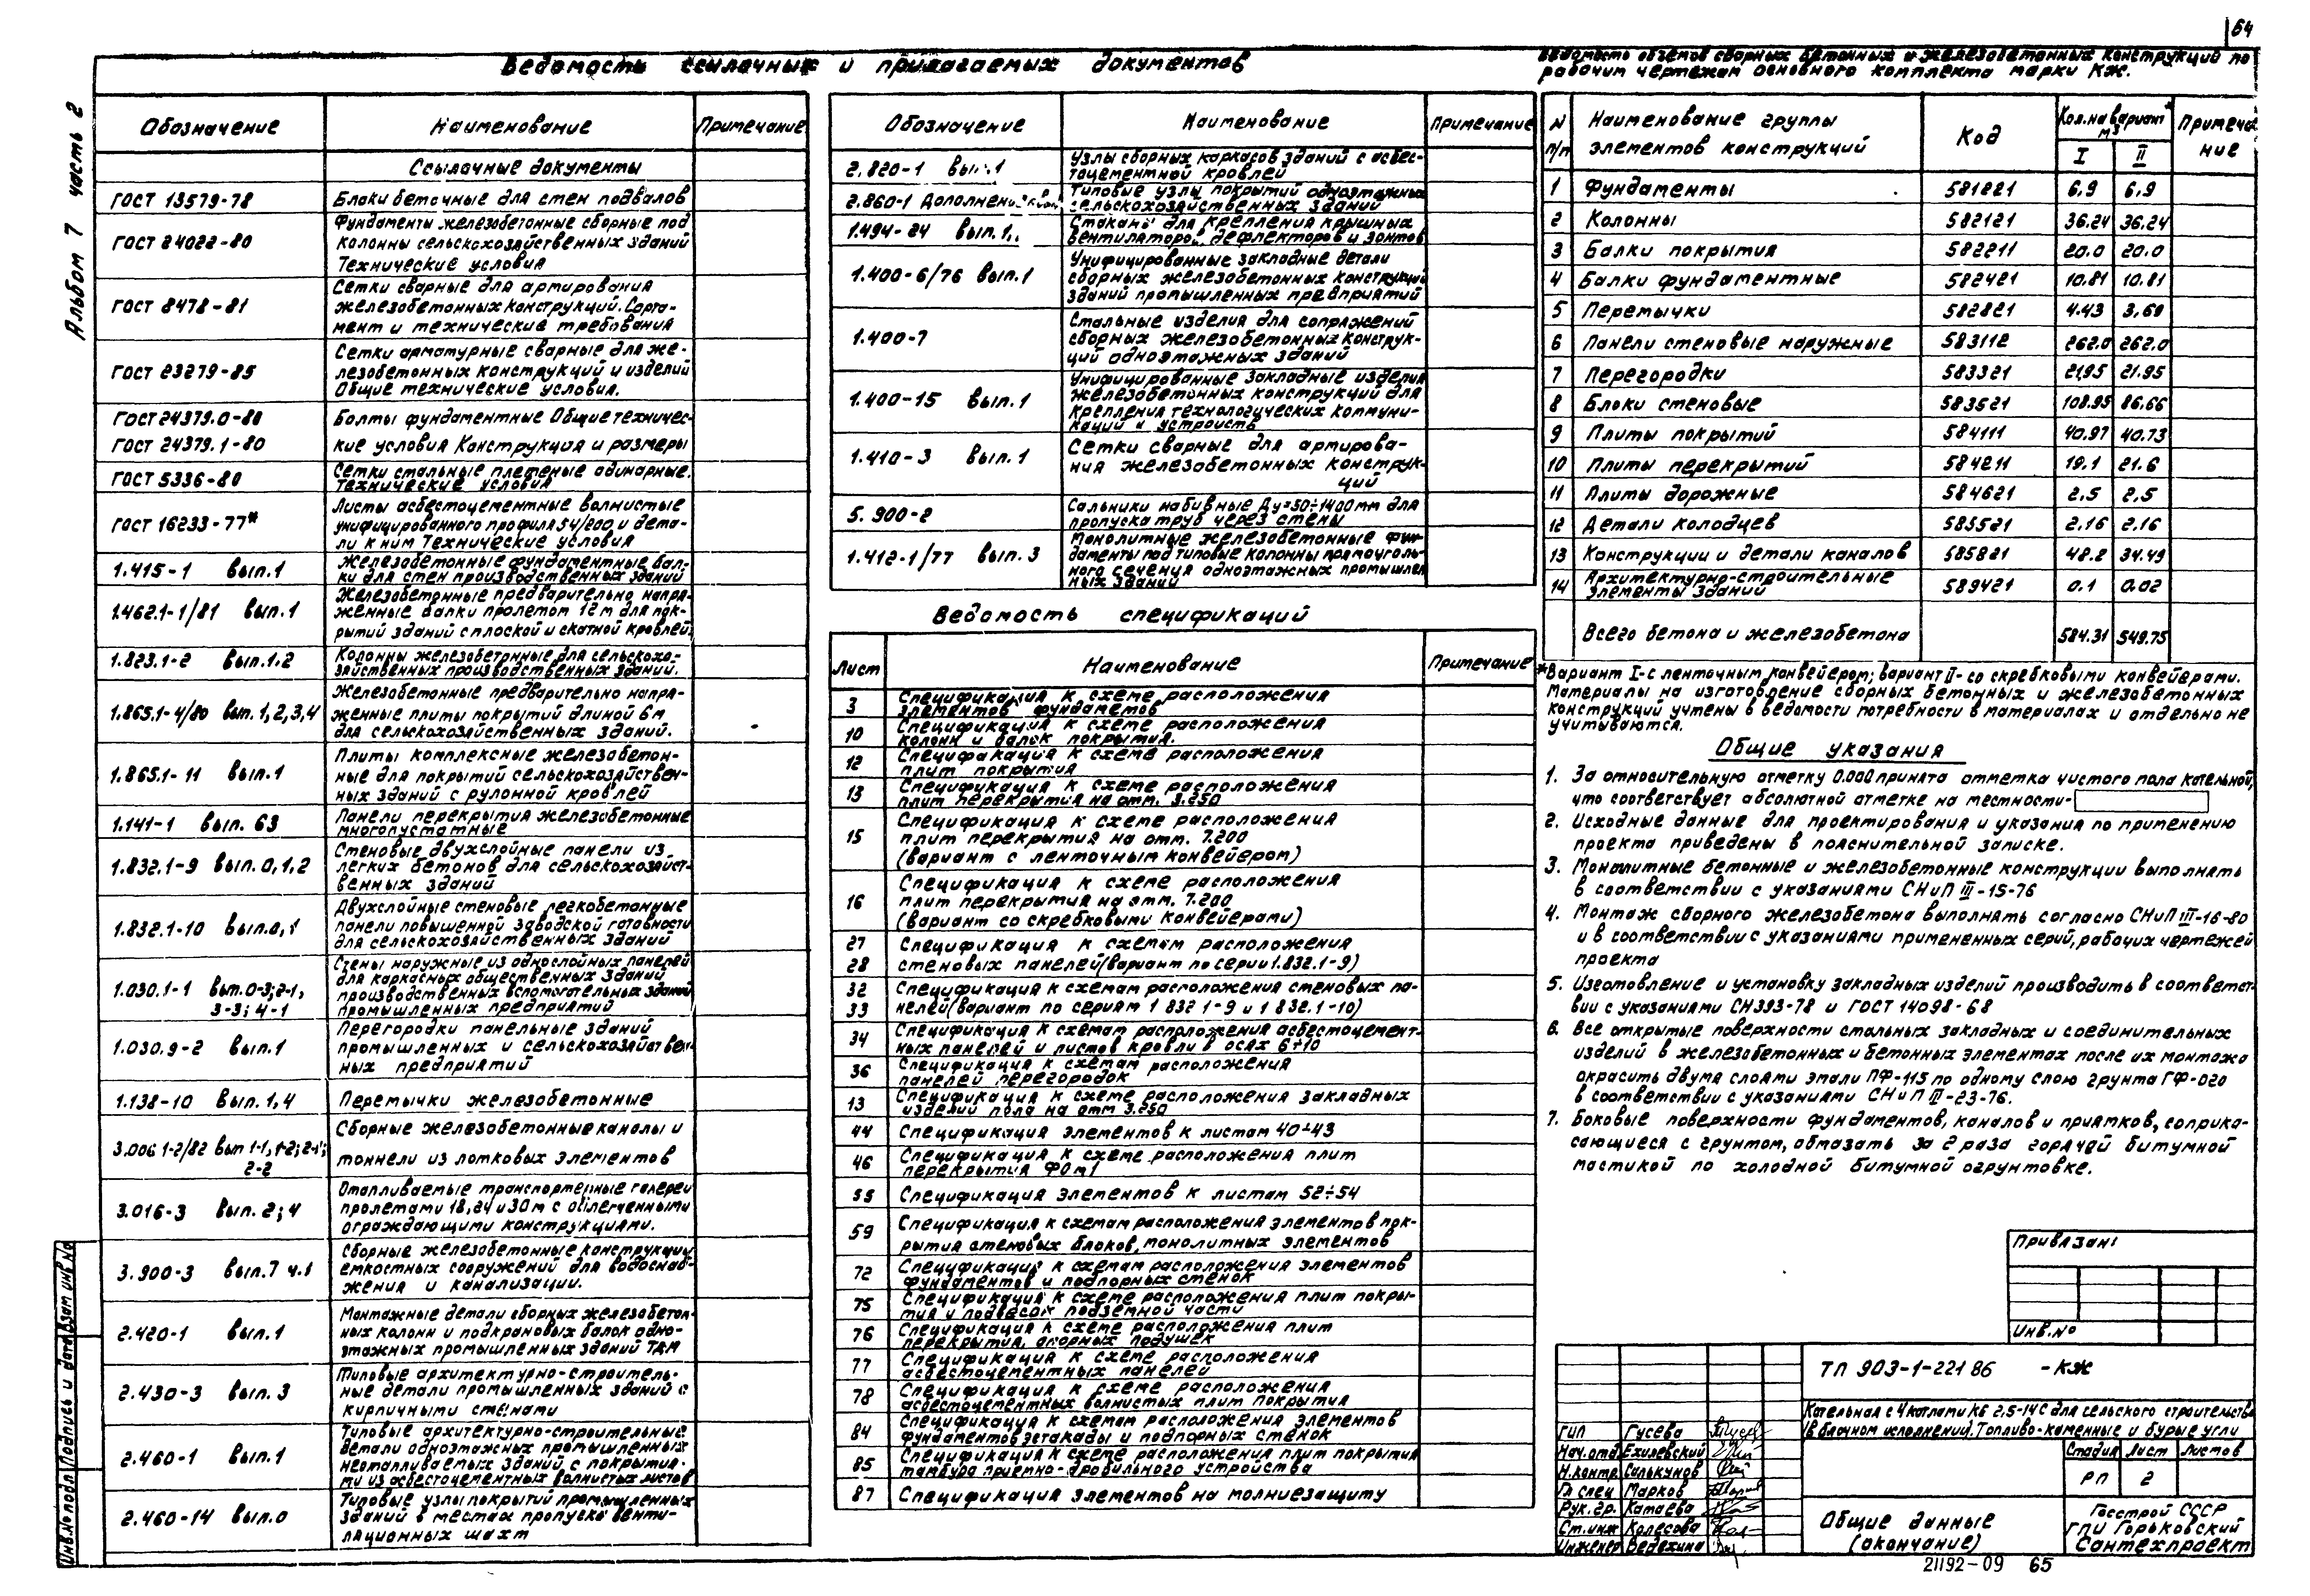 64
Альбом 7 часть 2
Ведомость ссылочных и прилагаемых документов
Обозначение
Наименование
Примечание
Ссылочные документы
ГОСТ 13579-78
Блоки бетонные для стен подвалов
ГОСТ 24022-80
Фундаменты железобетонные сборные под
колонны сельскохозяйственных зданий
Технические условия
ГОСТ 8478-81
Сетки сварные для армирования
железобетонных конструкций. Сорта-
мент и технические требования
ГОСТ 23279-85
Сетки арматурные сварные для же-
лезобетонных конструкций и изделий
Общие технические условия.
ГОСТ 24379.0-80
Болты фундаментные Общие техничес-
ГОСТ 24379.1-80
кие условия Конструкция и размеры
ГОСТ 5336-80
Сетки стальные плетеные одинарные.
Технические условия
ГОСТ 16233-77*
Листы асбестоцементные волнистые
унифицированного профиля 54/200 и дета-
ли к ним Технические условия
1.415-1 вып.1
Железобетонные фундаментные бал-
ки для стен производственных зданий
1.462.1-1/81 вып.1
Железобетонные предварительно напря-
женные балки пролетом 12м для пок-
рытий зданий с плоской и скатной кровлей.
1.823.1-2 вып.1,2
Колонны железобетонные для сельскохо-
зяйственных производственных зданий.
1.865.1-4/80 вып. 1,2,3,4
Железобетонные предварительно напря-
женные плиты покрытий длиной 6м
для сельскохозяйственных зданий.
1.865.1-11 вып.1
Плиты комплексные железобетон-
ные для покрытий сельскохозяйствен-
ных зданий с рулонной кровлей
1.141-1 вып. 63
Панели перекрытия железобетонные
многопустотные
1.832.1-9 вып. 0,1,2
Стеновые двухслойные панели из
легких бетонов для сельскохозяйст-
венных зданий
1.832.1-10 вып.0,1
Двухслойные стеновые легкобетонные
панели повышенной заводской готовности
для сельскохозяйственных зданий
1.030.1-1 вып. 0-3; 2-1,
3-3; 4-1
Стены наружные из однослойных панелей
для каркасных общественных зданий
производственных вспомогательных зданий
промышленных предприятий
1.030.9-2 вып.1
Перегородки панельные зданий
промышленных и сельскохозяйствен-
ных предприятий
1.138-10 вып. 1,4
Перемычки железобетонные
3.006 1-2/82 вып 1-1, 1-2; 2-1;
2-2
Сборные железобетонные каналы и
тоннели из лотковых элементов
3.016-3 вып. 2; 4
Отапливаемые транспортерные галереи
пролетами 18,24 и 30м с облегченными
ограждающими конструкциями.
3.900-3 вып.7 ч.1
Сборные железобетонные конструкции
емкостных сооружений для водоснаб-
жения и канализации.
2.420-1 вып.1
Монтажные детали сборных железобетон-
ных колонн и подкрановых балок одно-
этажных промышленных зданий ТДМ
2.430-3 вып. 3
Типовые архитектурно-строитель-
ные детали промышленных зданий с
кирпичными стенами
2.460-1 вып.1
Типовые архитектурно-строительные
детали одноэтажных промышленных
неотапливаемых зданий с покрытия-
ми из асбестоцементных волнистых листов
2.460-14 вып.0
Типовые узлы покрытий промышленных
зданий в местах пропуска венти-
ляционных шахт
Обозначение
Наименование
Примечание
2.820-1 вып.1
Узлы сборных каркасов зданий с асбес-
тоцементной кровлей
2.860-1 Дополнен.
Типовые узлы покрытий одноэтажных
сельскохозяйственных зданий
1.494-24 вып.1.
Стаканы для крепления крышных
вентиляторов, дефлекторов и зонтов
1.400-6/76 вып.1
Унифицированные закладные детали
сборных железобетонных конструкций
зданий промышленных предприятий
1.400-7
Стальные изделия для сопряжений
сборных железобетонных конструк-
ций одноэтажных зданий
1.400-15 вып.1
Унифицированные закладные изделия
железобетонных конструкций для
крепления технологических коммуни-
каций и устройств
1.410-3 вып.1
Сетки сварные для армирова-
ния железобетонных конструк-
ций
5.900-2
Сальники набивные Ду=50÷1400мм для
пропуска труб через стены
1.412-1/77 вып. 3
Монолитные железобетонные фун-
даменты под типовые колонны прямоуголь-
ного сечения одноэтажных промышлен
ных зданий
Ведомость спецификаций
Лист
Наименование
Примечание
3
Спецификация к схеме расположения
элементов фундаметов
10
Спецификация к схеме расположения
колонн и балок покрытия.
12
Спецификация к схеме расположения
плит покрытия
13
Спецификация к схеме расположения
плит перекрытия на отм. 3.250
15
Спецификация к схеме расположения
плит перекрытия на отм. 7.200
(вариант с ленточным конвейером)
16
Спецификация к схеме расположения
плит перекрытия на отм. 7.200
(вариант со скребковыми конвейерами)
27
Спецификация к схемам расположения
28
стеновых панелей(вариант по серии 1.832.1-9)
32
Спецификация к схемам расположения стеновых па-
33
нелей(вариант по сериям 1 832 1-9 и 1 832.1-10)
34
Спецификация к схемам расположения асбестоцемент-
ных панелей и листов кровли в осях 6÷10
36
Спецификация к схемам расположения
панелей перегородок
13
Спецификация к схеме расположения закладных
изделий пола на отм 3.250
44
Спецификация элементов к листам 40÷43
46
Спецификация к схеме расположения плит
перекрытия ФОм1
55
Спецификация элементов к листам 52÷54
59
Спецификация к схемам расположения элементов пок-
рытия стеновых блоков, монолитных элементов
72
Спецификация к схемам расположения элементов
фундаментов и подпорных стенок
75
Спецификация к схеме расположения плит покры-
тия и подвесок подземной части
76
Спецификация к схеме расположения плит
перекрытия, опорных подушек
77
Спецификация к схеме расположения
асбестоцементных панелей
78
Спецификация к схеме расположения
асбестоцементных волнистых плит покрытия
84
Спецификация к схемам расположения элементов
фундаментов эстакады и подпорных стенок
85
Спецификация к схеме расположения плит покрытия
тамбура приемно-дробильного устройства
87
Спецификация элементов на молниезащиту
Ведомость объемов сборных бетонных и железобетонных конструкций по
рабочим чертежам основного комплекта марки КЖ.
N п/п
Наименование группы
элементов конструкций
Код
Кол. на вариант*
м³
I II
Примеча
ние
1 Фундаменты 581221 6,9 6,9
2 Колонны 582121 36.24 36,24
3 Балки покрытия 582211 20.0 20.0
4 Балки фундаментные 582421 10.81 10.81
5 Перемычки 582821 4.43 3,60
6 Панели стеновые наружные 583112 262.0 262.0
7 Перегородки 583321 21,95 21.95
8 Блоки стеновые 583521 108.95 86.66
9 Плиты покрытий 584111 40.97 40.73
10 Плиты перекрытий 584211 19.1 21.6
11 Плиты дорожные 584621 2,5 2,5
12 Детали колодцев 585521 2.16 2.16
13 Конструкции и детали каналов 585821 48.2 34.49
14 Архитектурно-строительные
элементы зданий 589421 0.1 0.02
Всего бетона и железобетона 584.31 549.75
*Вариант I-с ленточным конвейером; вариант II-со скребковыми конвейерами.
Материалы на изготовление сборных бетонных и железобетонных
конструкций учтены в ведомости потребности в материалах и отдельно не
учитываются.
Общие указания
1. За относительную отметку 0.000 принята отметка чистого пола котельной,
что соответствует абсолютной отметке на местности-
2. Исходные данные для проектирования и указания по применению
проекта приведены в пояснительной записке.
3. Монолитные бетонные и железобетонные конструкции выполнять
в соответствии с указаниями СНиП III-15-76
4. Монтаж сборного железобетона выполнять согласно СНиП III-16-80
и в соответствии с указаниями примененных серий, рабочих чертежей
проекта
5. Изготовление и установку закладных изделий производить в соответст-
вии с указаниями СН393-78 и ГОСТ 14098-68
6. Все открытые поверхности стальных закладных и соединительных
изделий в железобетонных и бетонных элементах после их монтажа
окрасить двумя слоями эмали ПФ-115 по одному слою грунта ГФ-020
в соответствии с указаниями СНиП III-23-76.
7. Боковые поверхности фундаментов, каналов и приямков, соприка-
сающиеся с грунтом, обмазать за 2 раза горячей битумной
мастикой по холодной битумной огрунтовке.
Привязан:
Инв.№
ТП 903-1-221 86 -КЖ
Котельная с 4 котлами КЕ 2,5-14С для сельского строительства
(В блочном исполнении). Топливо-каменные и бурые угли
ГИП Гусева
Нач.отд Ехилевский
Н.контр Салькунов
Гл спец Марков
Рук.гр. Катаева
Ст.инж Колесова
Инженер Ведехина
Стадия Лист Листов
РП 2
Общие данные
(окончание)
Госстрой СССР
ГПИ Горьковский
Сантехпроект
21192-09 65
Инв.№ подл Подпись и дата Взам инв №